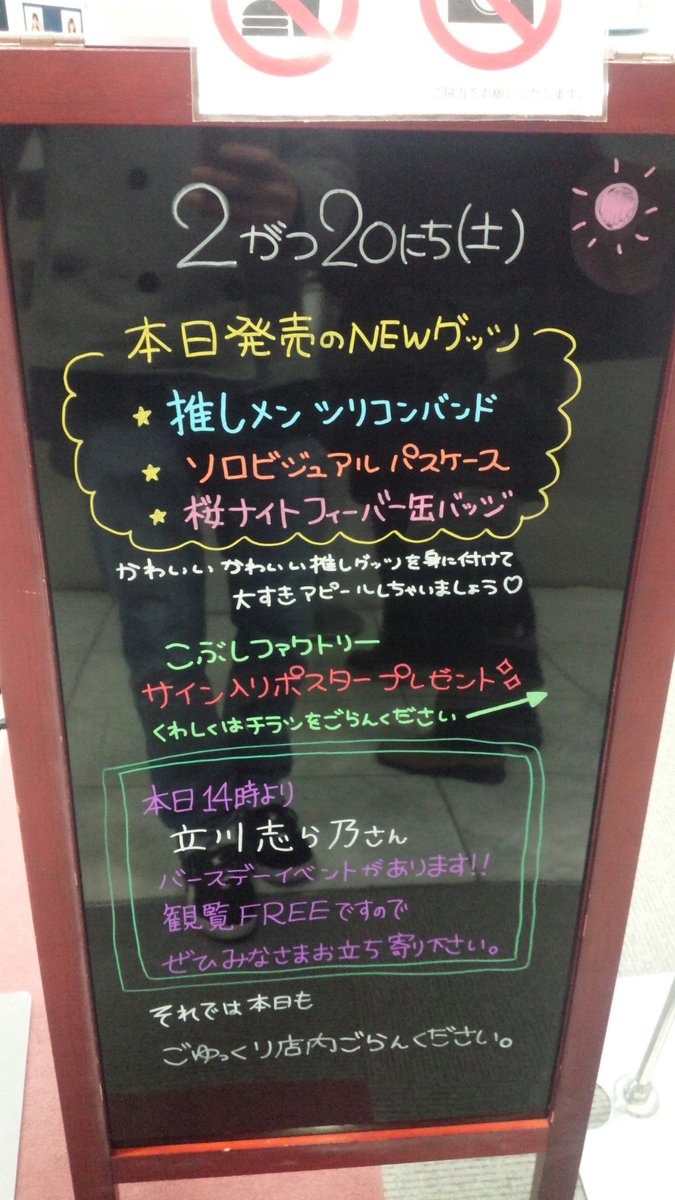 ご協力をお願いいたします。
2がつ20にち(土)
本日発売のNEWグッツ
★推しメン ツリコンバンド
★ソロビジュアル パスケース
★桜ナイトフィーバー缶バッジ
かわいい かわいい推しグッツを身に付けて
大すきアピールしちゃいましょう♡
こぶしファクトリー
サイン入りポスタープレゼント
くわしくはチラシをごらんください→
本日14時より
立川志ら乃さん
バースデーイベントがあります!!
観覧FREEですので
ぜひみなさまお立ち寄り下さい。
それでは本日も
ごゆっくり店内ごらんください。